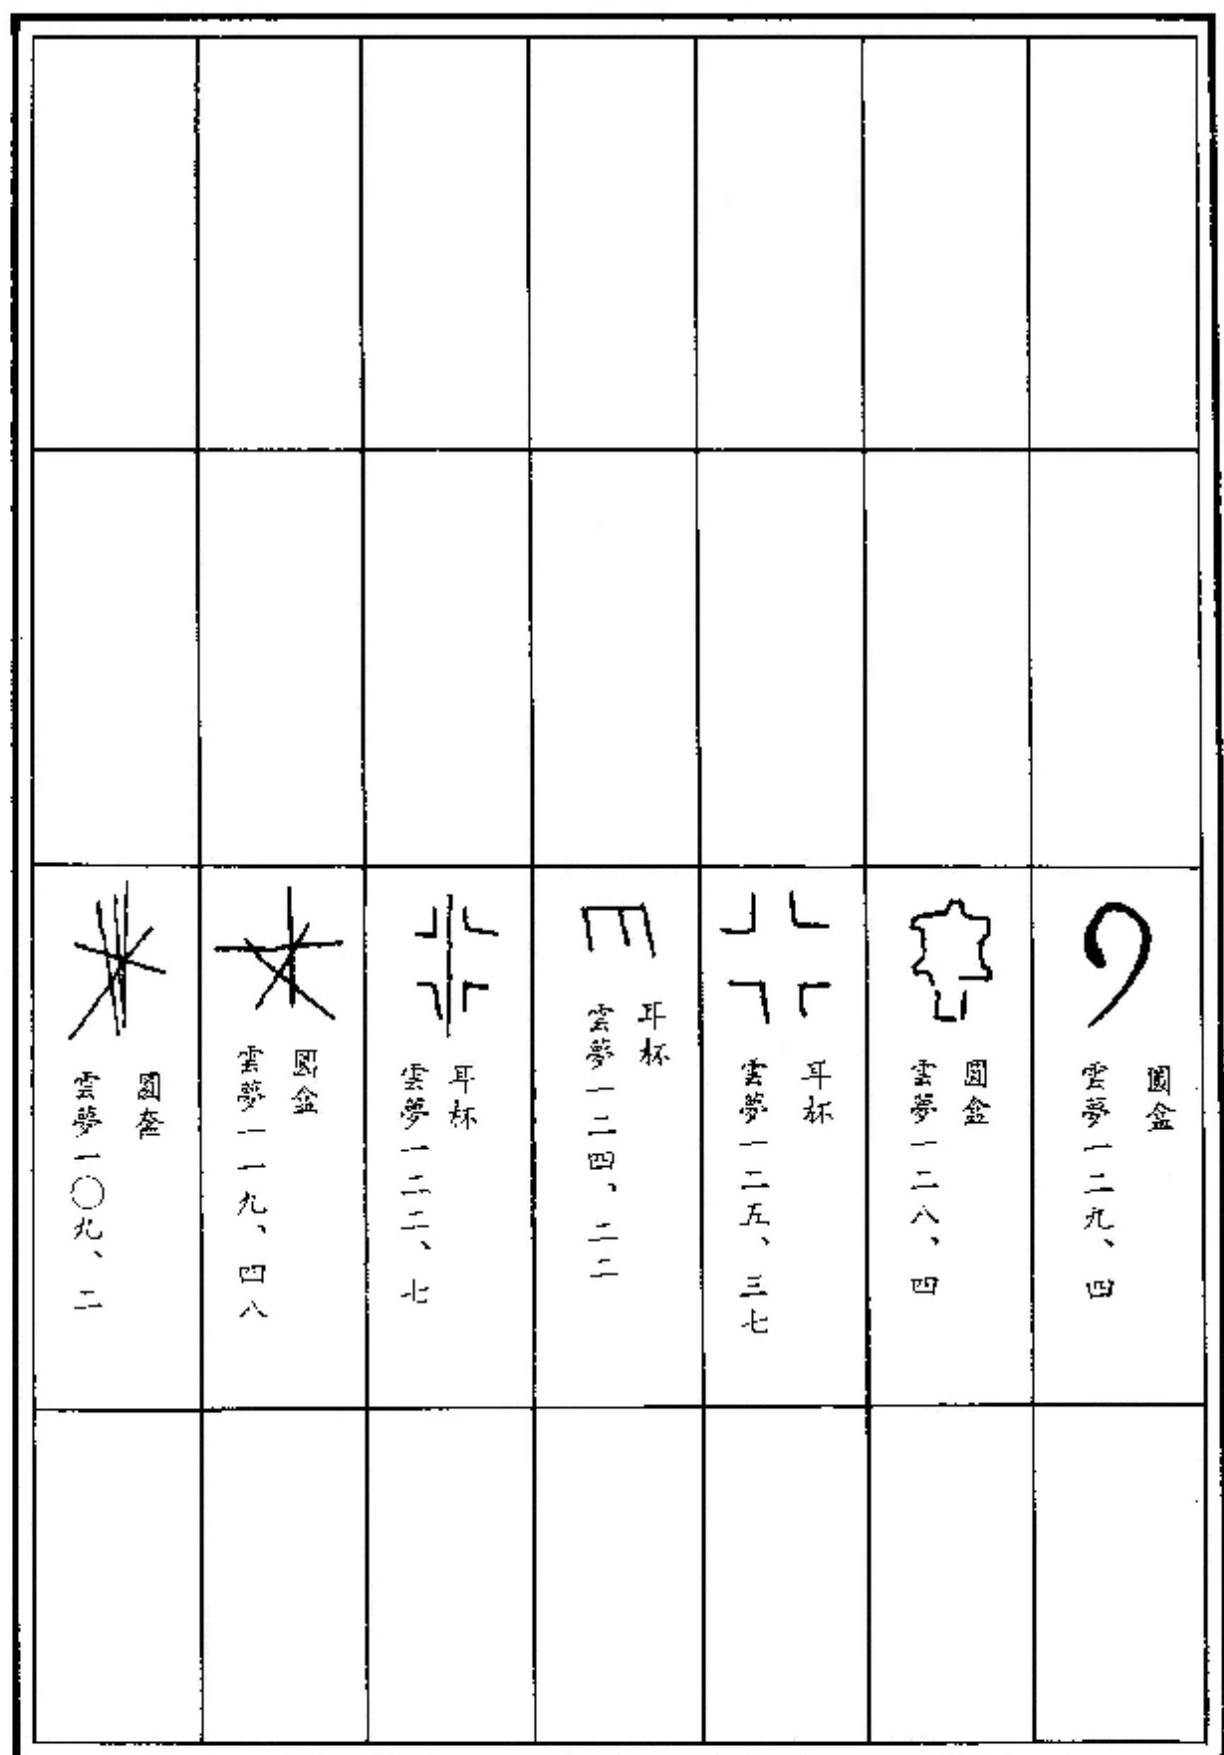 圓盒
雲夢一二九、四
圓盒
雲夢一二八、四
耳杯
雲夢一二五、三七
耳杯
雲夢一二四、二二
耳杯
雲夢一二二、七
圓盒
雲夢一一九、四八
圓奩
雲夢一〇九、二